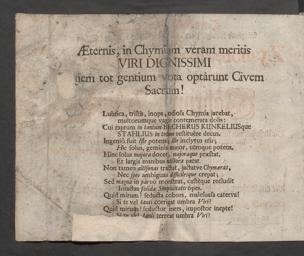 Æternis, in Chymiam veram meritis
VIRI DIGNISSIMI
quem tot gentium vota optârunt Civem
Sacrum!
Lubrica, tristis, inops, odiosa Chymia jacebat,
multorumque vagis contemerata dolis:
Cui raptum in tantum BECHERUS KUNKELIUSque
STAHLIUS in totum restituêre decus.
Ingeniô fuit ille potens, ille inclytus usu;
Hic solus, geminis major, utroque potens.
Hinc solus majora docet, majoraque præstat,
Et largis manibus utiliora parat.
Non tamen altisonas tractat, jactatve Chymæras,
Nec spes ambiguas difficilesque crepat;
Sed magna in parvo monstrat, castéque recludit
Intactas solidæ
Quid mirum! seducta cohors, malesuasa caterva!
Si te vel tanti corrigat umbra Viri!
Quid mirum! seductor iners, impostor inepte!
Si te vel tanti terreat umbra Viri!